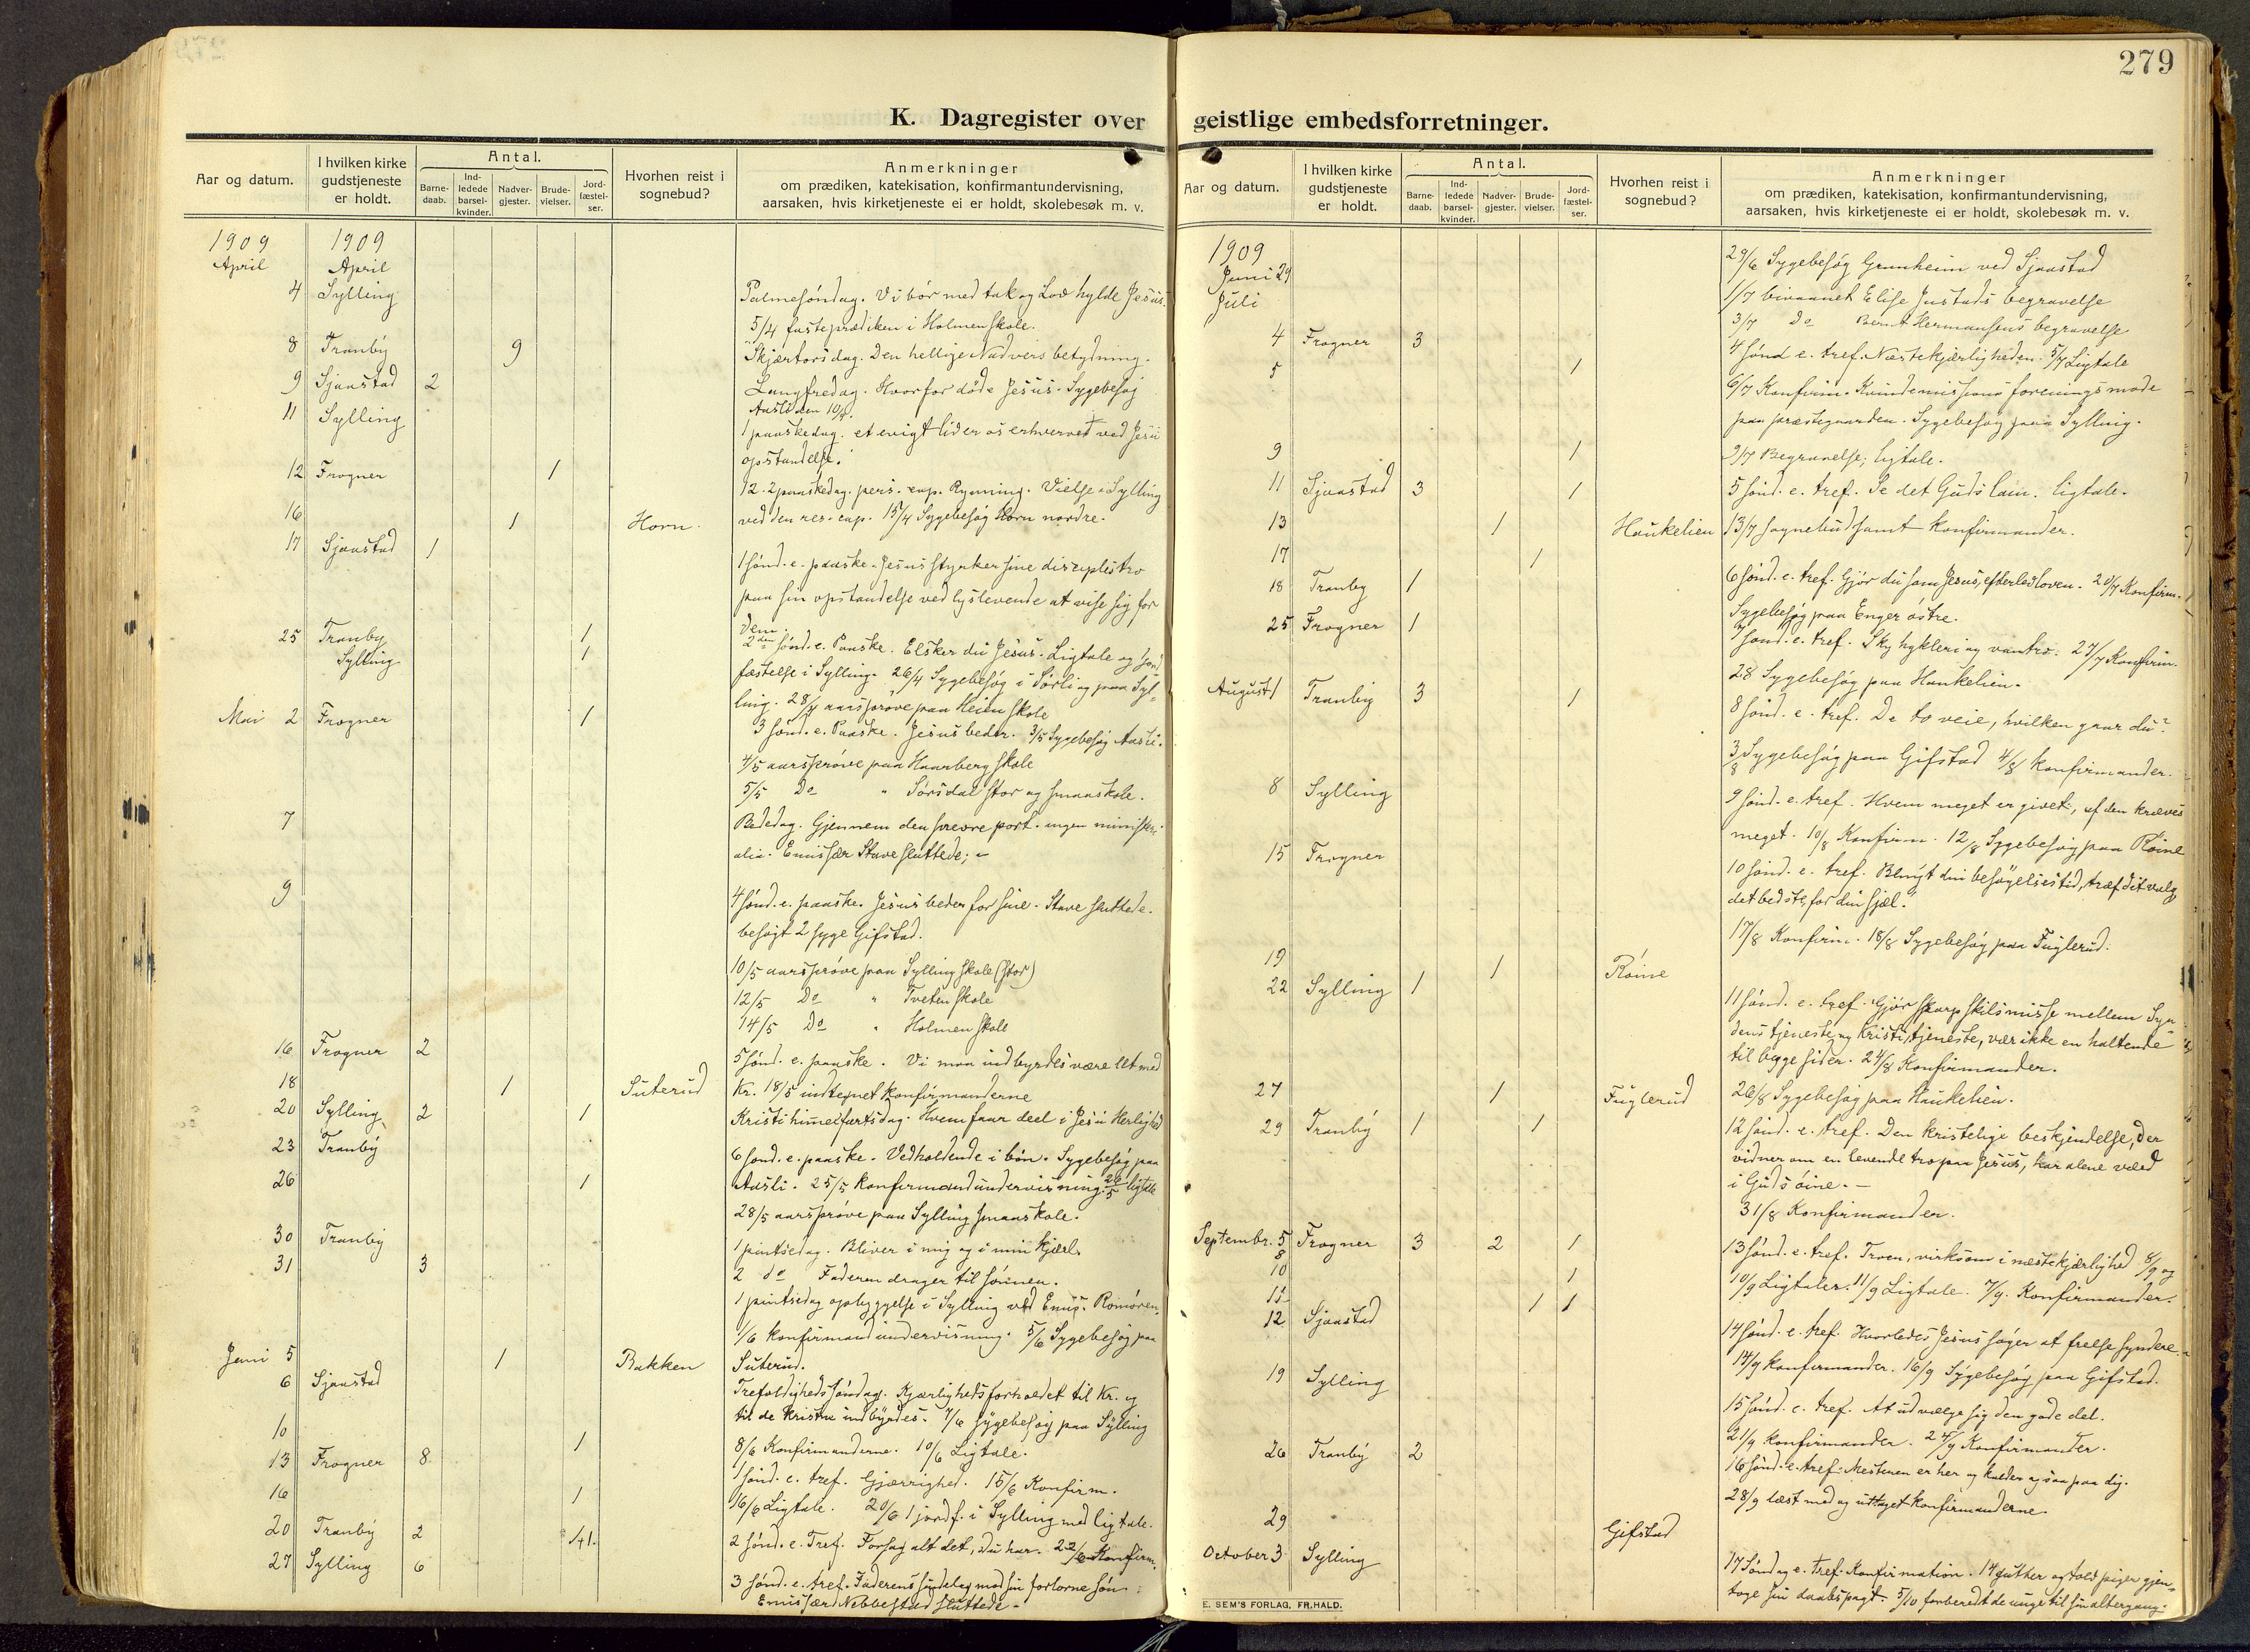 279
K. Dagregister over geistlige embedsforretninger.
Aar og datum.
I hvilken kirke gudstjeneste er holdt.
Antal.
Barne-daab.
Ind-ledede barsel-kvinder.
Nadver-gjester.
Brude-vielser.
Jord-fæstel-ser.
Hvorhen reist i sognebud?
Anmerkninger
om prædiken, katekisation, konfirmantundervisning,
aarsaken, hvis kirketjeneste ei er holdt, skolebesøk m. v.
1909 1909
April April
4 Sylling Palmesöndag. Vi bör med tak og Lov hylde Jesus.
5/4 fasteprædiken i Holmen skole.
8 Tranby 9 Skjærtorsdag. Den hellige Nadvers betydning.
9 Sjaastad 2 Langfredag. Hvorfor döde Jesus. Sygebesög
Aasli den 10/4.
11 Sylling 1 paaskedag. et evigt liv er os erhvervet ved Jesu
opstandelse.
12 Frogner 1 12. 2 paaskedag. pers. cap. Rynning. Vielse i Sylling
16 1 Horn. ved den res. cap. 15/4 Sygebesög Horn nordre.
17 Sjaastad 1 1 sönd. e. paaske. Jesus styrker sine disciples tro
paa sin opstandelse ved lyslevende at vise sig for
dem.
25 Tranby 1 2den sönd. e. Paaske. Elsker du Jesus. Ligtale og jord
Sylling 1 fæstelse i Sylling. 26/4 Sygebesög i Sörli og paa Syl-
ling. 28/4 aarspröve paa Heien skole
Mai 2 Frogner 1 3 sönd. e. Paaske. Jesus beder. 3/5 Sygebesög Aasli.
4/5 aarspröve paa Haarberg skole
5/5 Do " Sörsdal stor og smaaskole.
7 Bededag. Gjennem den snevre port. ingen ministeri-
alia. Emissær Stave sluttede; -
9 4 sönd. e. paaske. Jesus beder for sine. Stave sluttede.
besögt 2 syge Gifstad.
10/5 aarspröve paa Sylling skole (stor)
12/5 Do " Tveten skole
14/5 Do " Holmen skole
16 Frogner 2 5 sönd. e. paaske. Vi maa indbyrdes være let med
18 1 Suterud Kr. 18/5 indtegnet konfirmanderne
20 Sylling 2 1 Kristi himelfartsdag. Hvem faar deel i Jesu Herlighed
23 Tranby 6 sönd. e. paaske. Vedholdende i bön. Sygebesög paa
26 1 Aasli. 25/5 konfirmandundervisning. 26/5 ligtale
28/5 aarspröve paa Sylling smaaskole.
30 Tranby 1 pintsedag. Bliver i mig og i min kjærl.
31 3 2 do Faderen drager til sönnen.
1 pintsedag opbyggelse i Sylling ved Emis. Romören.
1/6 konfirmandundervisning. 5/6 Sygebesög paa
Juni 5 1 Bakken Suterud.
6 Sjaastad Trefoldighedssöndag. Kjærlighedsforholdet til Kr. og
til de kristne indbyrdes. 7/6 sygebesög paa Sylling
10 1 8/6 Konfirmanderne. 10/6 Ligtale.
13 Frogner 8 1 sönd. e. tref. Gjærrighed. 15/6 Konfirm.
16 1 16/6 Ligtale. 20/6 1 jordf. i Sylling med ligtale.
20 Tranby 2 2 sönd. e. Tref. Forsag alt det, du har. 22/6 Konfirm.
27 Sylling 6 3 sönd. e. tref. Faderens sindelag mod sin fortorne sön
Emissær Nebbestad sluttede.
1909 29/6 Sygebesög Grunheim ved Sjaastad
Juni 29
Juli 1/7 bivaanet Elise Justads begravelse
3/7 Do Bernt Hermansens begravelse
4 Frogner 3 4 sönd e. tref. Næstekjærligheden. 5/7 Ligtale
5 1 6/7 Konfirm. Kvindemissions foreningsmöde
paa præstegaarden. Sygebesög paa Sylling.
9 1 9/7 Begravelse; ligtale.
11 Sjaastad 3 1 5 sönd. e. tref. Se det Guds lam. ligtale.
13 1 Haukelien 13/7 sognebud samt konfirmander.
17 1
18 Tranby 1 6 sönd. e. tref. Gjör du som Jesus, efterlev loven. 20/7 Konfirm.
Sygebesög paa Enger östre.
25 Frogner 1 7 sönd. e. tref. Sky hykleri og vantro. 27/7 Konfirm.
28 Sygebesög paa Haukelien.
August 1 Tranby 3 1 8 sönd. e. tref. De to veie, hvilken gaar du?
3/8 Sygebesög paa Gifstad 4/8 konfirmander.
8 Sylling 9 sönd. e. tref. Hvem meget er givet, af den kræves
meget. 10/8 Konfirm. 12/8 Sygebesög paa Röine
15 Frogner 10 sönd. e. tref. Benyt din besögelsestid, træf dit valg,
det bedste, for din sjæl.
17/8 Konfirm. 18/8 Sygebesög paa Fuglerud.
19 1 Röine
22 Sylling 1 11 sönd. e. tref. Gjör skarp skilsmisse mellem Syn-
dens tjeneste og Kristi tjeneste, vær ikke en haltende
til begge sider. 24/8 Konfirmander.
27 1 Fuglerud 26/8 Sygebesög paa Haukelien.
29 Tranby 1 1 12 sönd. e. tref. Den kristelige beskjendelse, der
vidner om en levende tro paa Jesus, har alene værd
i Guds öine. -
31/8 Konfirmander.
Septembr. 5 Frogner 3 2 1 13 sönd. e. tref. Troen, virksom i næstekjærlighed 8/9 og
8
10 1 10/9 Ligtaler. 11/9 Ligtale. 7/9. Konfirmander.
11 1 1
12 Sjaastad 14 sönd. e. tref. Hvorledes Jesus söger at frelse syndere.
14/9 konfirmander. 16/9 Sygebesög paa Gifstad.
19 Sylling 15 sönd. e. tref. At udvælge sig den gode del.
21/9 konfirmander. 24/9 Konfirmander.
26 Tranby 2 16 sönd. e. tref. Mesteren er her og kalder ogsaa paa dig.
28/9 læst med og uttaget konfirmanderne.
29 Gifstad
October 3 Sylling 17 Söndag e. Tref. Konfirmation. 14 gutter og tolv piger gjen-
toge sin daabspagt. 5/10 forberedt de unge til sin altergang.
E. SEM'S FORLAG, FR.HALD.